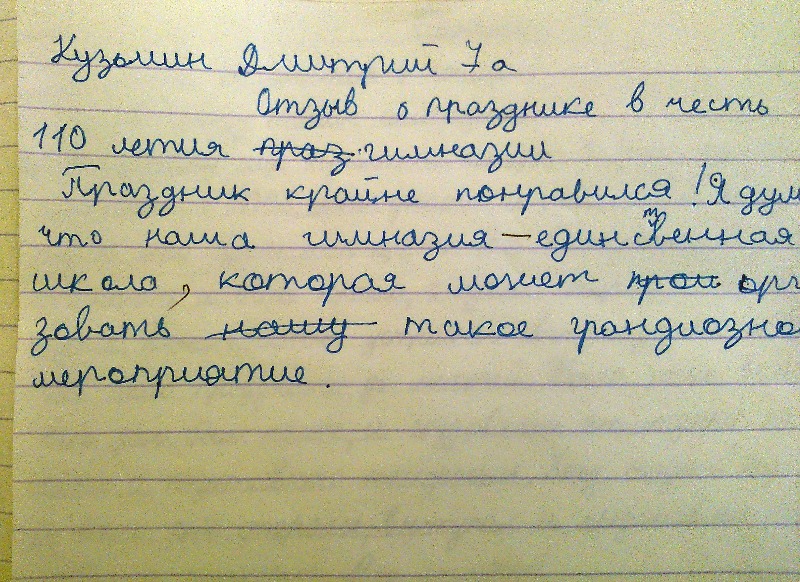 Кузьмин Дмитрий 7а
Отзыв о празднике в честь
110 летия праз гимназии
Праздник крайне понравился! Я дум
что наша гимназия — единственная
школа, которая может прои орг
зовать нашу такое грандиозно
мероприятие.